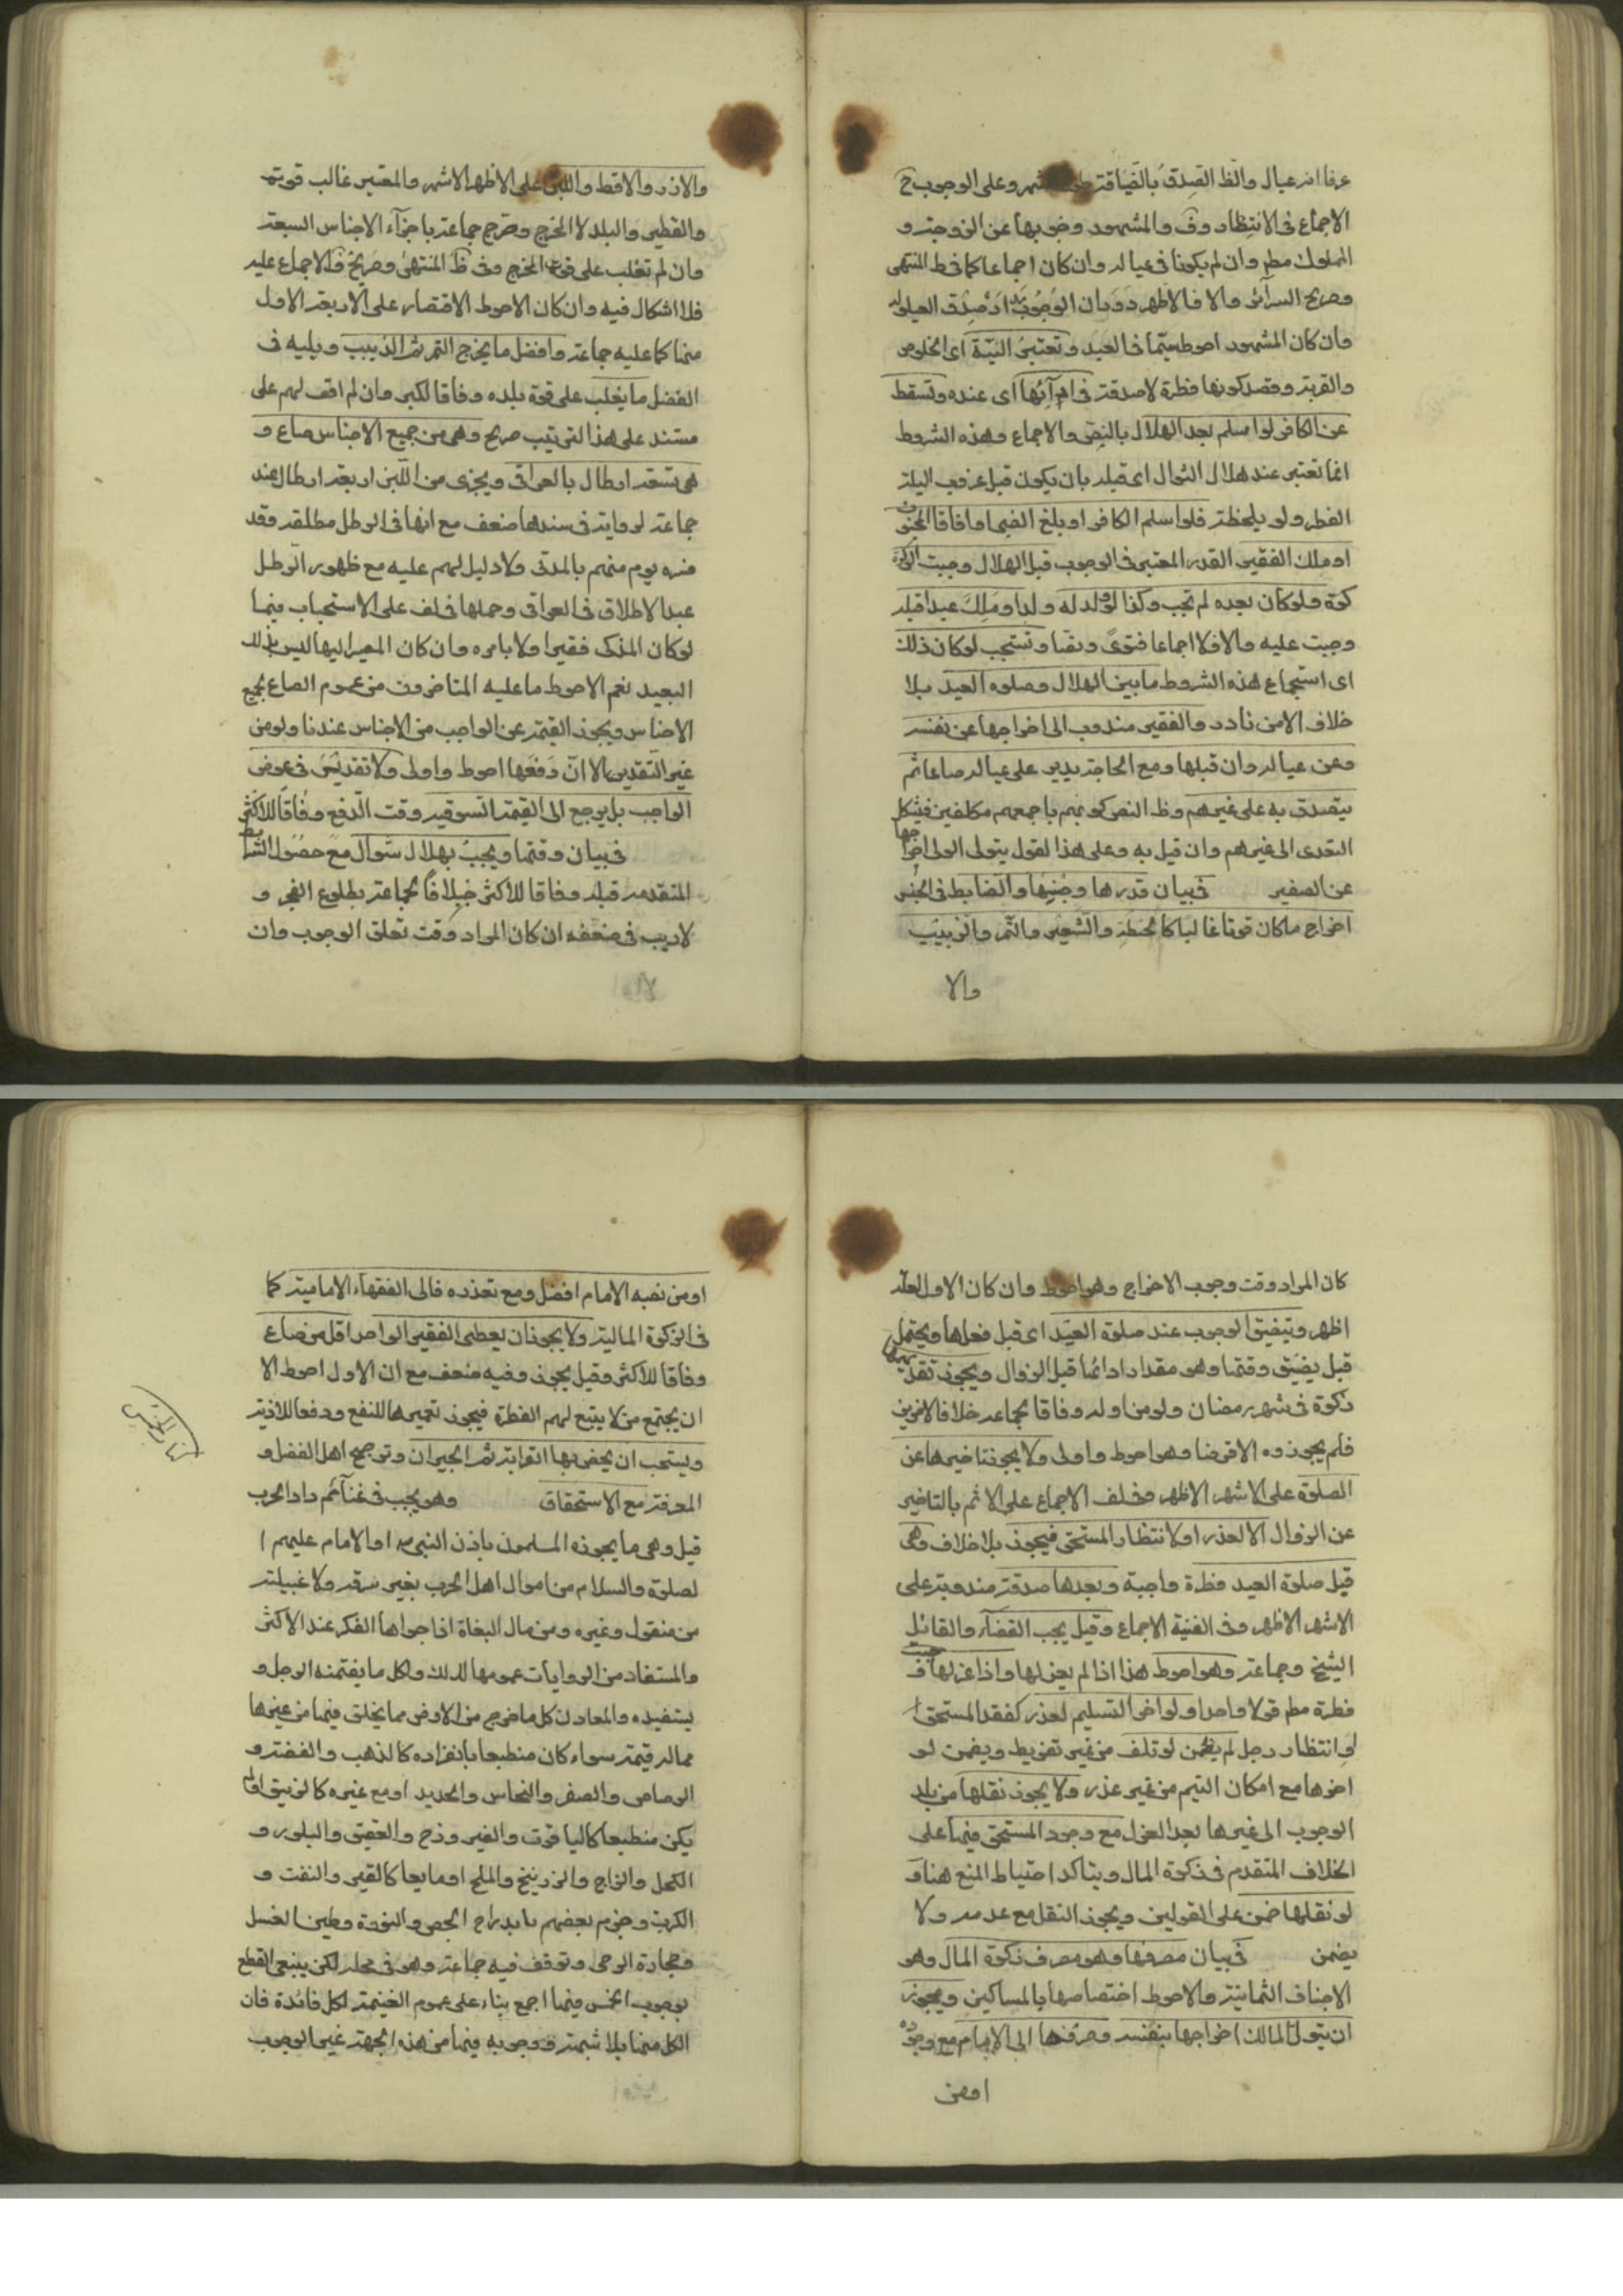 عرفا انه عيال والظ الصدق بالضيافة وعلى الوجوب ح
الاجماع فى الانتظار وف والمشهود وجوبها عن الزوجة و
المملوك مطم وان لم يكونا فى عياله وان كان اجماعا كما فى ط المنتهى
وصريح السرآئر والا فالاظهر دوران الوجوب مدار صدق العيلوله
وان كان المشهود احوط حتما فى العبد وتعتبر النيّة اى الخلوص
والقربة وقصد كونها فطرة لا صدقة فى ادآئها اى عنده وتسقط
عن الكافر لو اسلم بعد الهلال بالنص والاجماع وهذه الشروط
انما تعتبر عند هلال الشوال اى قبله بان يكون قبل غروب ليلة
الفطر ولو بلحظة فلو اسلم الكافر او بلغ الصبى او افاق المجنون
او ملك الفقير القدر المعتبر فى الوجوب قبل الهلال وجبت الزكوة
كوة ولو كان بعده لم تجب وكذا لو ولد له ولد او ملك عبدا قبله
وجبت عليه والا فلا اجماعا فتوى ونصا وتستحب لو كان ذلك
اى استجماع هذه الشروط ما بين الهلال وصلوة العيد بلا
خلاف الا من نادر والفقير مندوب الى اخراجها عن نفسه
وعن عياله وان قبلها ومع الحاجة يدير على عياله صاعا ثم
يتصدق به على غيرهم وظ النص كونهم باجمعهم مكلفين فيشكل
التعدى الى غيرهم وان قيل به وعلى هذا القول يتولى الولى اخراجها
عن الصغير فى بيان قدرها وجنسها والضابط فى الجنس
اخراج ما كان قوتا غالبا كالحنطة والشعير والتمر والزبيب
والا
والارز والاقط واللبن على الاظهر الاشهر والمعتبر غالب قوت
والقطر والبلد لا المخرج وصرح جماعة باجزآء الاجناس السبعة
وان لم تغلب على قوت المخرج وفى ظ المنتهى وصريح ف الاجماع عليه
فلا اشكال فيه وان كان الاحوط الاقتصار على الاربعة الاول
منها كما عليه جماعة وافضل ما يخرج التمر ثم الزبيب ويليه فى
الفضل ما يغلب على قوة بلده وفاقا لكبر وان لم اقف لهم على
مستند على هذا الترتيب صريح وهى من جميع الاجناس صاع و
هى تسعة ارطال بالعراقى ويجزى من اللبن اربعة ارطال عند
جماعة لرواية فى سندها ضعف مع انها فى الرطل مطلقة وقد
فسره يوم منهم بالمدنى ولا دليل لهم عليه مع ظهور الرطل
عند الاطلاق فى العراقى وحملها فى لف على الاستحباب فيما
لو كان المذك فقيرا ولا باس به وان كان المصير اليها ليس بذلك
البعيد نعم الاحوط ما عليه المتاخرون من عموم الصاع بجميع
الاجناس ويجوز القيمة عن الواجب من الاجناس عندنا ولو من
غير النقدين الا انّ دفعها احوط واولى ولا تقدير فى عوض
الواجب بل يرجع الى القيمة السوقية وقت الدفع وفاقا للاكثر
فى بيان وقتها ويجب بهلال شوال مع حصول الشرائط
المتقدمه قبله وفاقا للاكثر خلافا لجماعة بطلوع الفجر و
لا ريب فى ضعفه ان كان المراد وقت تعلق الوجوب وان
كان المراد وقت وجوب الاخراج وهو احوط وان كان الاول لعله
اظهر ويتضيق الوجوب عند صلوة العيد اى قبل فعلها ويحتمل
قبل يضيق وقتها وهو مقدار ادائها قبل الزوال ويجوز تقديمها
زكوة فى شهر رمضان ولو من اوله وفاقا لجماعة خلافا لاخرين
فلم يجوزوه الا قرضا وهو احوط واولى ولا يجوز تاخيرها عن
الصلوة على الاشهر الاظهر وفى لف الاجماع على الاثم بالتاخير
عن الزوال الا لعذر او لانتظار المستحق فيجوز بلا خلاف وهى
قبل صلوة العيد فطرة واجبة وبعدها صدقة مندوبة على
الاشهر الاظهر وفى الغنية الاجماع وقيل يجب القضآء والقائل
الشيخ وجماعة وهو احوط هذا اذا لم يعزلها واذا عزلها وجبت ف
فطرة مطم قولا واحدا ولو اخر التسليم لعذر كفقد المستحق ا
او انتظار رجل لم يضمن لو تلف من غير تفريط ويضمن لو
اخرها مع امكان التيم من غير عذر ولا يجوز نقلها من بلد
الوجوب الى غيرها بعد العزل مع وجود المستحق فيها على
الخلاف المتقدم فى زكوة المال ويتاكد احتياط المنع هنا و
لو نقلها ضمن على القولين ويجوز النقل مع عدمه ولا
يضمن فى بيان مصرفها وهو مصرف زكوة المال وهو
الاصناف الثمانية والاحوط اختصاصها بالمساكين ويجوز
ان يتولى المالك اخراجها بنفسه وصرفها الى الامام مع وجوده
اومن
او من نصبه الامام افضل ومع تعذره فالى الفقهآء الامامية كما
فى الزكوة المالية ولا يجوز ان يعطى الفقير الواحد اقل من صاع
وفاقا للاكثر وقيل يجوز وفيه ضعف مع ان الاول احوط الا
ان يجتمع من لا يتبع لهم الفطرة فيجوز تعميرها للنفع ودفعا للاذية
ويستحب ان يخص بها القرابة ثم الجيران وترجيح اهل الفضل و
المعرفة مع الاستحقاق وهو يجب فى غنآئم دار الحرب
كتاب الخمس
قيل وهى ما يحوزه المسلمون باذن النبى ص او الامام عليهم ا
لصلوة والسلام من اموال اهل الحرب بغير سرقة ولا غيلة
من منقول وغيره ومن مال البغاة اذا حواها العسكر عند الاكثر
والمستفاد من الروايات عمومها لذلك ولكل ما يغتنمه الرجل و
يستفيده والمعادن كل ما خرج من الارض مما يخلق فيها من غيرها
مما له قيمة سواء كان منطبعا بانفراده كالذهب والفضة و
الرصاص والصفر والنحاس والحديد او مع غيره كالزيبق او لم
يكن منطبعا كالياقوت والفيروزج والعقيق والبلور و
الكحل والزاج والزرنيخ والملح او مايعا كالقير والنفت و
الكبريت وجزم بعضهم بابدراج الجص والنورة وطين الغسل
وحجارة الرحى وتوقف فيه جماعة وهو فى محله لكن ينبغى القطع
بوجوب الخمس فيها اجمع بناء على عموم الغنيمة لكل فائدة فان
الكل منها بلا شبهة ووجوبه فيها من هذه الجهة غير الوجوب